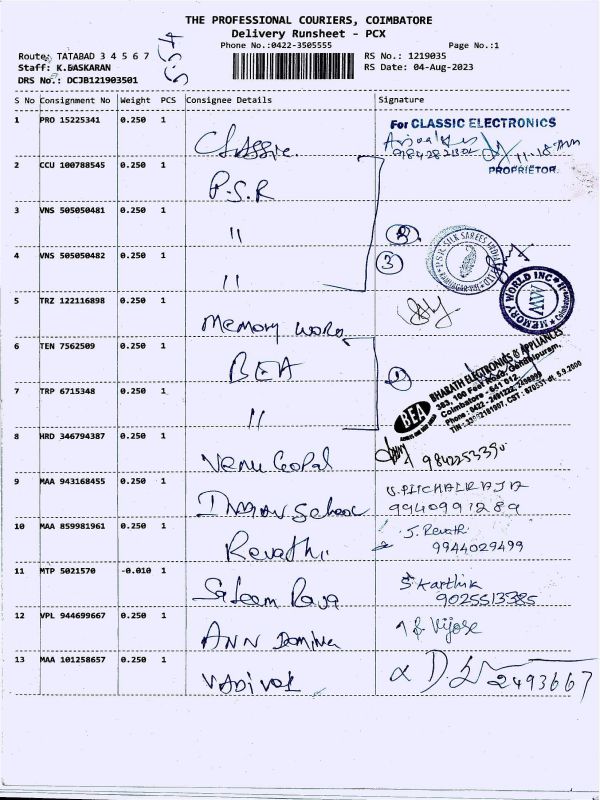 THE PROFESSIONAL COURIERS, COIMBATORE
Delivery Runsheet - PCX
Phone No.:0422-3505555
Page No.:1
Route: TATABAD 3 4 5 6 7
Staff: K.BASKARAN
DRS No.: DCJB121903501
RS No.: 1219035
RS Date: 04-Aug-2023
S No Consignment No Weight PCS Consignee Details Signature
1 PRO 15225341 0.250 1 Classic
For CLASSIC ELECTRONICS
PROPRIETOR
2 CCU 100788545 0.250 1 P.S.R
3 VNS 505050481 0.250 1 "
4 VNS 505050482 0.250 1 " 3
PSR SILK SAREES INDIA
5 TRZ 122116898 0.250 1 Memory
MEMORY WORLD INC
Coimbatore
MW
6 TEN 7562509 0.250 1 BEA
BEA
BHARATH ELECTRONICS & APPLIANCES
383, 100 Feet Road, Gandhipuram,
Coimbatore - 641 012.
7 TRP 6715348 0.250 1 "
8 HRD 346794387 0.250 1 Venu Gopal
9 MAA 943168455 0.250 1
9940991289
10 MAA 859981961 0.250 1 Revathi J. Revathi
9944029499
11 MTP 5021570 -0.010 1 S. Karthik
9025513385
12 VPL 944699667 0.250 1 ANN
13 MAA 101258657 0.250 1 VADIVEL
2493667